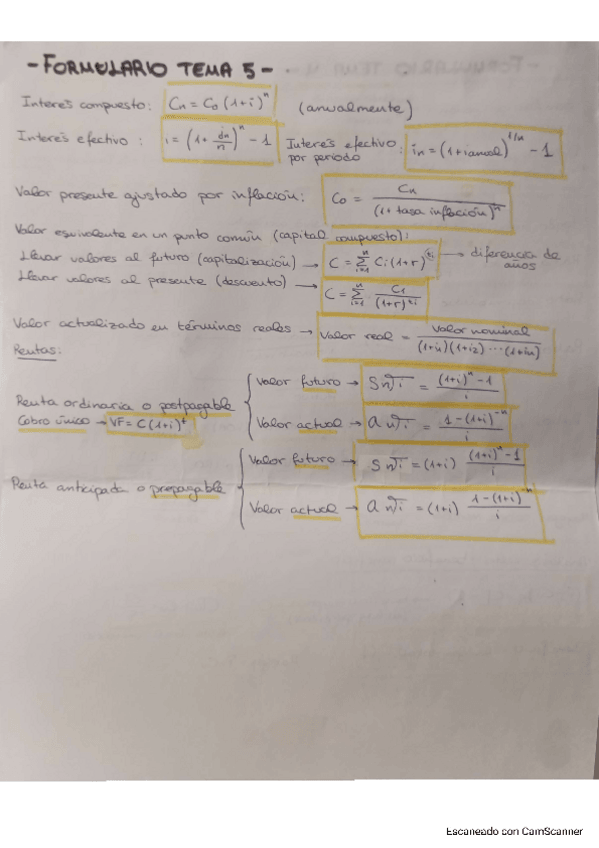 - FORMULARIO TEMA 5 -
Interés compuesto: Cn = C0 (1+i)^n (anualmente)
Interés efectivo: i = (1 + dn/n)^n - 1 Interés efectivo por período: in = (1+ianual)^1/n - 1
Valor presente ajustado por inflación: C0 = Cn / (1+ tasa inflación)^n
Valor equivalente en un punto común (capital compuesto):
Llevar valores al futuro (capitalización) → C = Σ i=1 n Ci (1+r)^ti → diferencia de años
Llevar valores al presente (descuento) → C = Σ i=1 n C1 / (1+r)^ti
Valor actualizado en términos reales → Valor real = Valor nominal / (1+i1)(1+i2)···(1+in)
Rentas:
Renta ordinaria o postpagable { Valor futuro → S n⌉i = (1+i)^n - 1 / i
Cobro único → VF = C(1+i)^t
Valor actual → a n⌉i = 1-(1+i)^-n / i
Renta anticipada o prepagable { Valor futuro → S n⌉i = (1+i) (1+i)^n - 1 / i
Valor actual → a n⌉i = (1+i) 1-(1+i)^-n / i
Escaneado con CamScanner